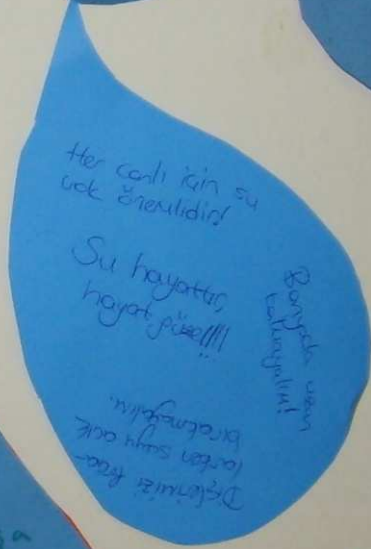 Her canlı için su
çok önemlidir!
Su hayattır,
hayat güzel!!!!
Banyoda uzun
kalmayalım!
Dişlerimizi fırça-
larken suyu açık
bırakmayalım.